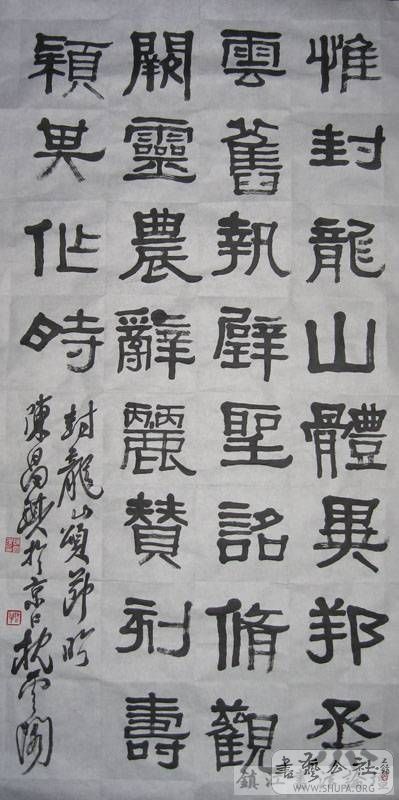 惟封龍山體異邦丞
雲舊執聖詔脩觀
闕靈農辭麗贊刻壽
穎其作時
封龍山頌節
陳昌於京口枕雲閣
書藝公社
WWW.SHUPA.ORG
鎮江